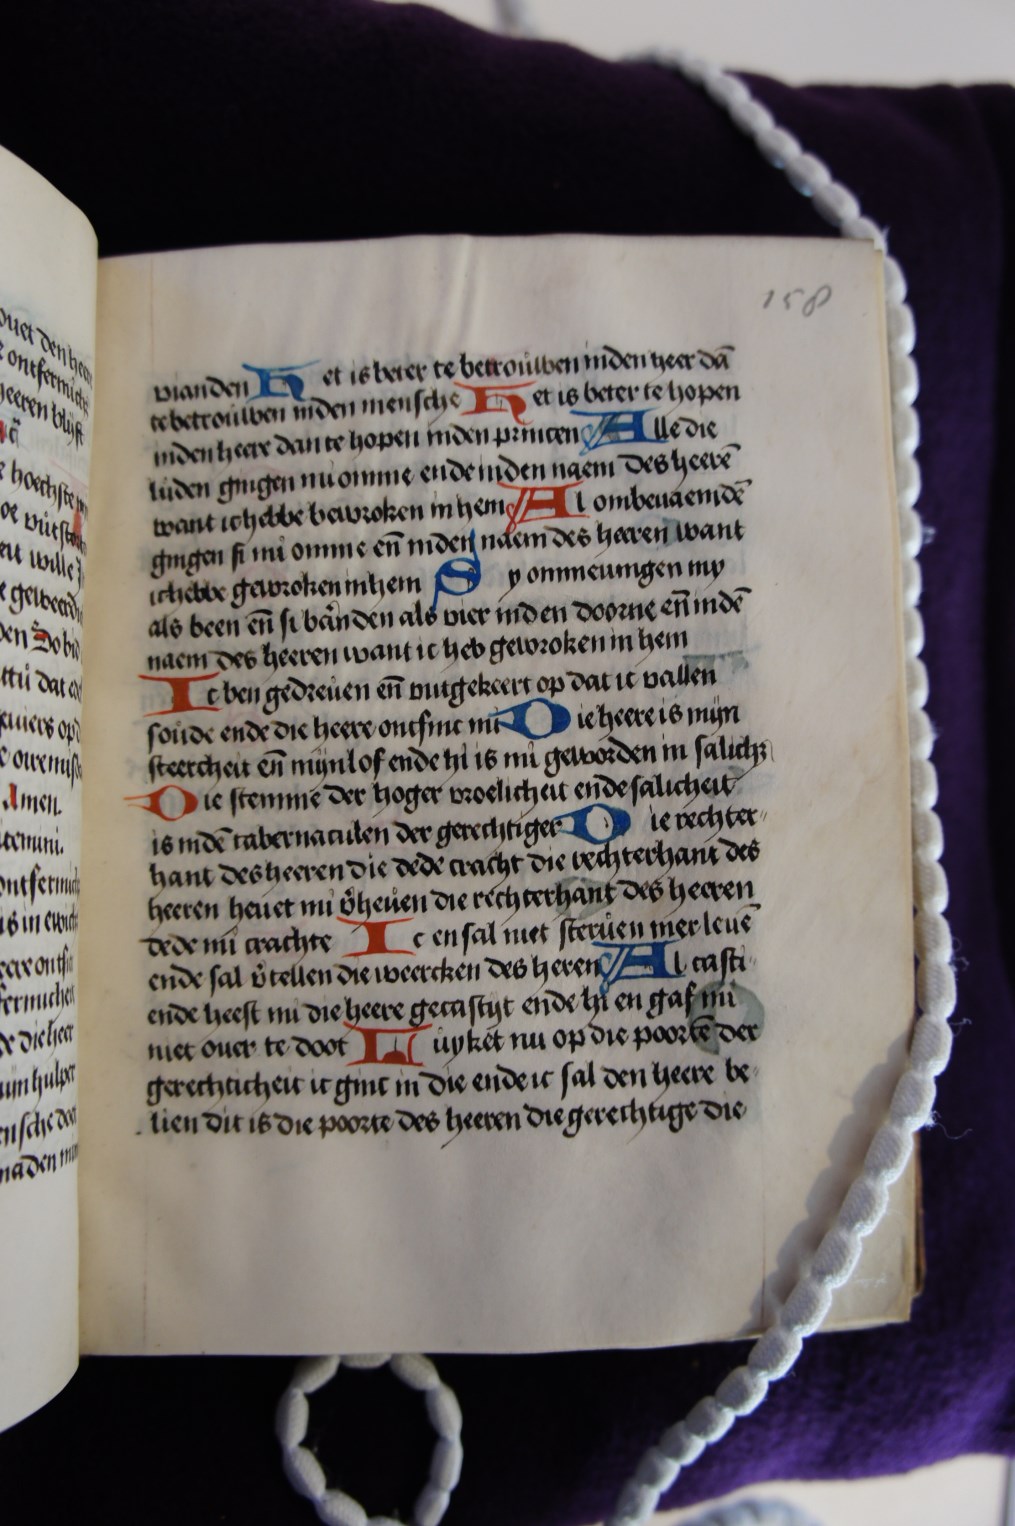 158
vianden Het is beter te betrouwen inden heer dā
te betrouwen inden mensche Het is beter te hopen
inden heere dan te hopen inden princen Alle die
luden gingen nu omme ende inden naem des heerē
want ic hebbe gewroken in hem Al ombeuaendē
gingen si mi omme eñ inden naem des heeren want
ic hebbe gewroken in hem Sy ommeuingen my
als been eñ si branden als vier inden doorne eñ indē
naem des heeren want ic heb gewroken in hem
Ic ben gedreuen eñ vutgekeert op dat ic vallen
soude ende die heere ontfinc mi Die heere is mijn
steercheit eñ mijn lof ende hi is mi geworden in salich
Die stemme der hoger vroelicheit ende salicheit
is indē tabernaculen der gerechtiger Die rechter
hant des heeren die dede cracht die rechterhant des
heeren heuet mi v͛heuen die rechterhant des heeren
dede mi crachte Ic en sal niet steruen mer leuē
ende sal v͛tellen die weercken des heren Al casti
ende heeft mi die heere gecastijt ende hi en gaf mi
niet ouer te doot Luyket nu op die poortē der
gerechticheit ic ginc in die ende ic sal den heere be
lien dit is die poorte des heeren die gerechtige die